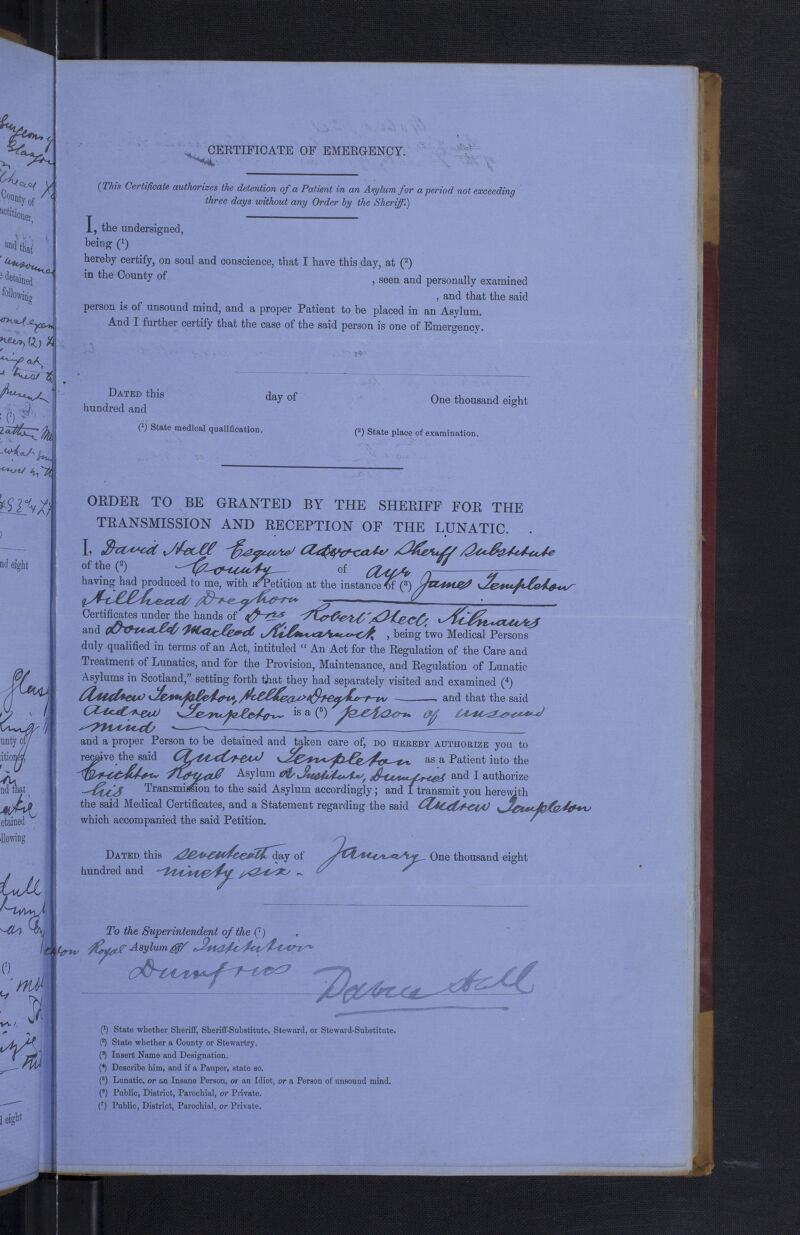 CERTIFICATE OF EMERGENCY.
(This Certificate authorizes the detention of a Patient in an Asylum for a period not exceeding
three days without any Order by the Sheriff.)
I, the undersigned,
being (¹)
hereby certify, on soul and conscience, that I have this day, at (²)
in the County of , seen and personally examined
, and that the said
person is of unsound mind, and a proper Patient to be placed in an Asylum.
And I further certify that the case of the said person is one of Emergency.
DATED this day of One thousand eight
hundred and
(¹) State medical qualification. (²) State place of examination.
ORDER TO BE GRANTED BY THE SHERIFF FOR THE
TRANSMISSION AND RECEPTION OF THE LUNATIC.
I, David Hall Esquire Advocate Sheriff Substitute
of the (²) County of Ayr
having had produced to me, with a Petition at the instance of (³) James Templeton
Hillhead Dreghorn
Certificates under the hands of Drs Robert Steel, Kilmaurs
and Donald Macleod Kilmarnock, being two Medical Persons
duly qualified in terms of an Act, intituled “ An Act for the Regulation of the Care and
Treatment of Lunatics, and for the Provision, Maintenance, and Regulation of Lunatic
Asylums in Scotland,” setting forth that they had separately visited and examined (⁴)
Andrew Templeton, Hillhead Dreghorn and that the said
Andrew Templeton is a (⁵) person of unsound
mind
and a proper Person to be detained and taken care of, DO HEREBY AUTHORIZE you to
receive the said Andrew Templeton as a Patient into the
Crichton Royal Asylum or Institute, Dumfries and I authorize
his Transmission to the said Asylum accordingly; and I transmit you herewith
the said Medical Certificates, and a Statement regarding the said Andrew Templeton
which accompanied the said Petition.
DATED this seventeenth day of January One thousand eight
hundred and ninety six -
To the Superintendent of the (⁷)
Royal Asylum or Institution
Dumfries
David Hall
(¹) State whether Sheriff, Sheriff-Substitute, Steward, or Steward-Substitute.
(²) State whether a County or Stewartry.
(³) Insert Name and Designation.
(⁴) Describe him, and if a Pauper, state so.
(⁵) Lunatic, or an Insane Person, or an Idiot, or a Person of unsound mind.
(⁶) Public, District, Parochial, or Private.
(⁷) Public, District, Parochial, or Private.